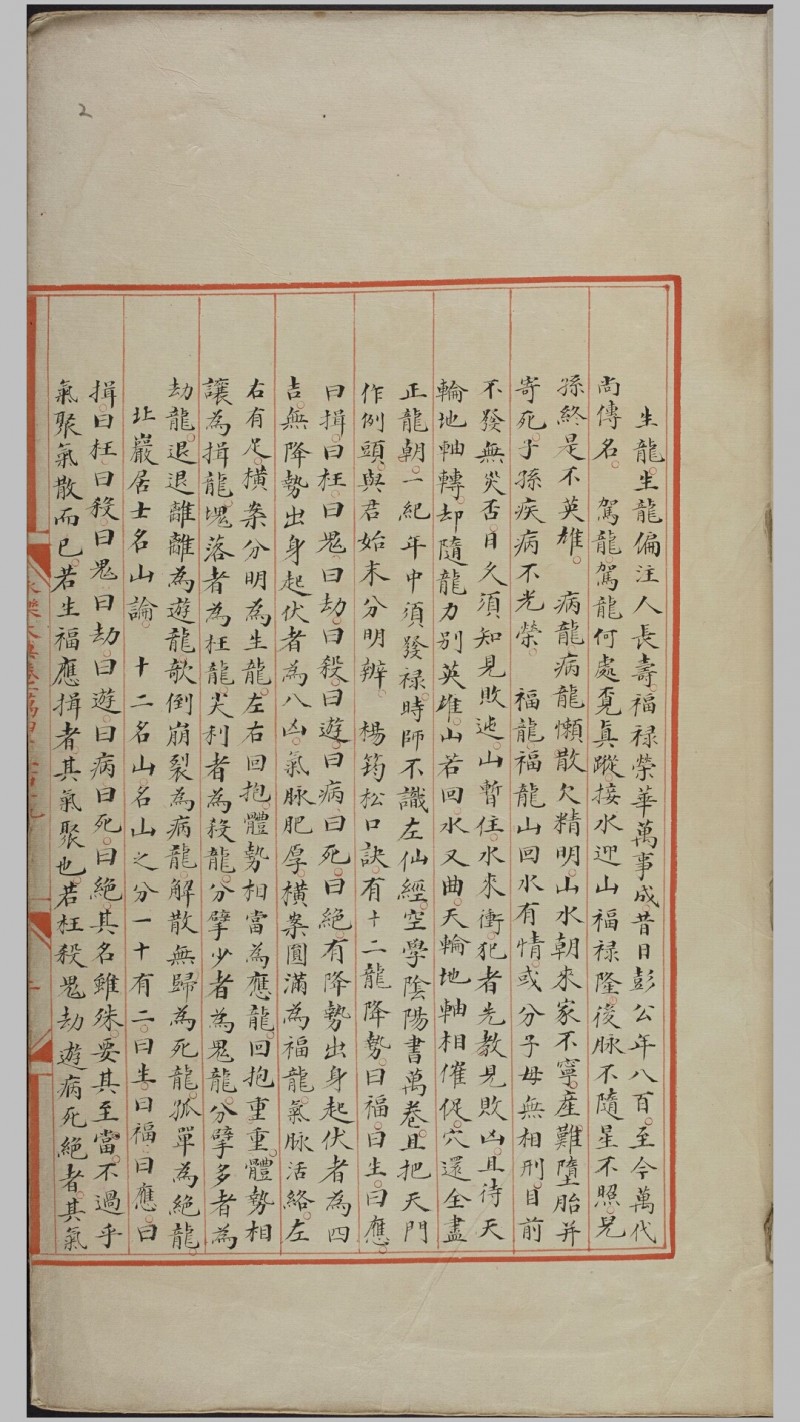 2
生龍。生龍偏注人長壽。福祿榮華萬事成。昔日彭公年八百。至今萬代
尚傳名。　駕龍。駕龍何處覔真蹤。接水迎山福祿隆。後脉不隨星不照。兒
孫終是不英雄。　病龍。病龍懶散欠精明。山水朝來家不寧。產難墮胎并
寄死。子孫疾病不光榮。　福龍。福龍山回水有情。或分子母無相刑。目前
不發無災否。日久須知見敗迍。山暫住。水來衝。犯者先教見敗凶。且待天
輪地軸轉。却隨龍力别英雄。山若回。水又曲。天輪地軸相催促。穴還全盡
正龍朝。一紀年中須發祿。時師不識左仙經。空學陰陽書萬卷。且把天門
作例頭。與君始末分明辨。　楊筠松口訣。有十二龍降勢。曰福。曰生。曰應。
曰揖。曰枉。曰鬼。曰劫。曰殺。曰遊。曰病。曰死。曰絕。有降勢出身起伏者為四
吉。無降勢出身起伏者為八凶。氣脉肥厚。橫案圓滿為福龍。氣脉活絡。左
右有足。橫案分明為生龍。左右回抱。體勢相當為應龍。回抱重重。體勢相
讓為揖龍。塊落者為枉龍。尖利者為殺龍。分擘少者為鬼龍。分擘多者為
劫龍。退退離離為遊龍。欹倒崩裂為病龍。解散無歸為死龍。孤單為絕龍。
北巖居士名山論。　十二名山名山之分一十有二。曰生。曰福。曰應。曰
揖。曰枉。曰殺。曰鬼。曰劫。曰遊。曰病。曰死。曰絕。其名雖殊。要其至當。不過乎
氣聚氣散而已。若生福應揖者。其氣聚也。若枉殺鬼劫遊病死絕者。其氣
永樂大典卷之一萬四千二百十九